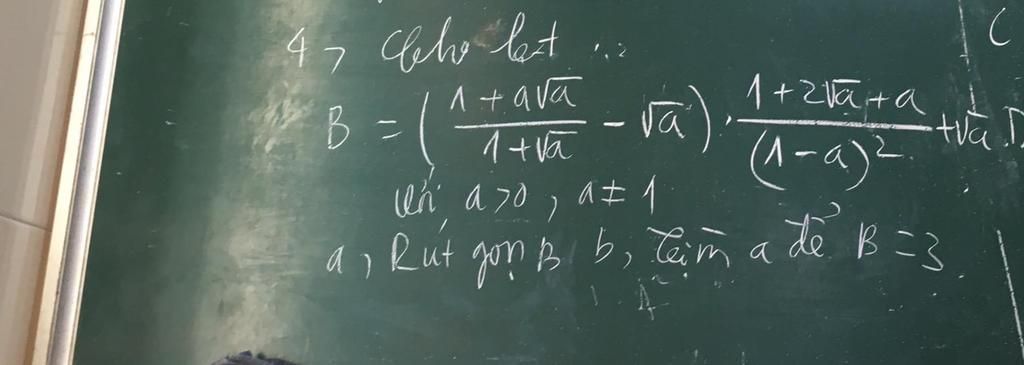 4, Cho bt :
B = ( \frac{1 + a\sqrt{a}}{1 + \sqrt{a}} - \sqrt{a} ) . \frac{1 + 2\sqrt{a} + a}{(1 - a)^2} + \sqrt{a}
với a > 0, a ≠ 1
a, Rút gọn B b, Tìm a để B = 3